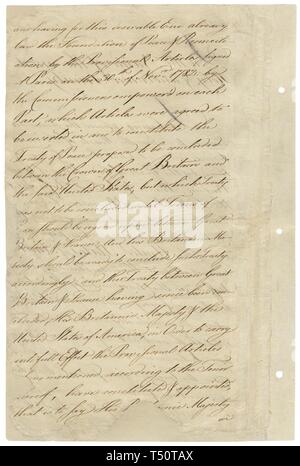 and having for this desirable End already
laid the Foundation of Peace & Reconcili
ation by the Provisional Articles signed
at Paris on the 30th of Nov.r 1782, by
the Commissioners empower'd on each
Part, which Articles were agreed to
be inserted in and to constitute the
Treaty of Peace proposed to be concluded
between the Crown of Great Britain and
the said United States, but which Treaty
was not to be concluded until Terms of
should be agreed upon between Great
Britain & France, And his Britannic Ma
jesty should be ready to conclude such Treaty
accordingly: and the treaty between Great
Britain & France having since been con
cluded, His Britannic Majesty & the
United States of America, in Order to carry
into full Effect the Provisional Articles
mentioned, according to the Tenor
thereof, have constituted & appointed,
that is to say His Majesty
on
alamy
alamy
Image ID: T50TAX
www.alamy.com